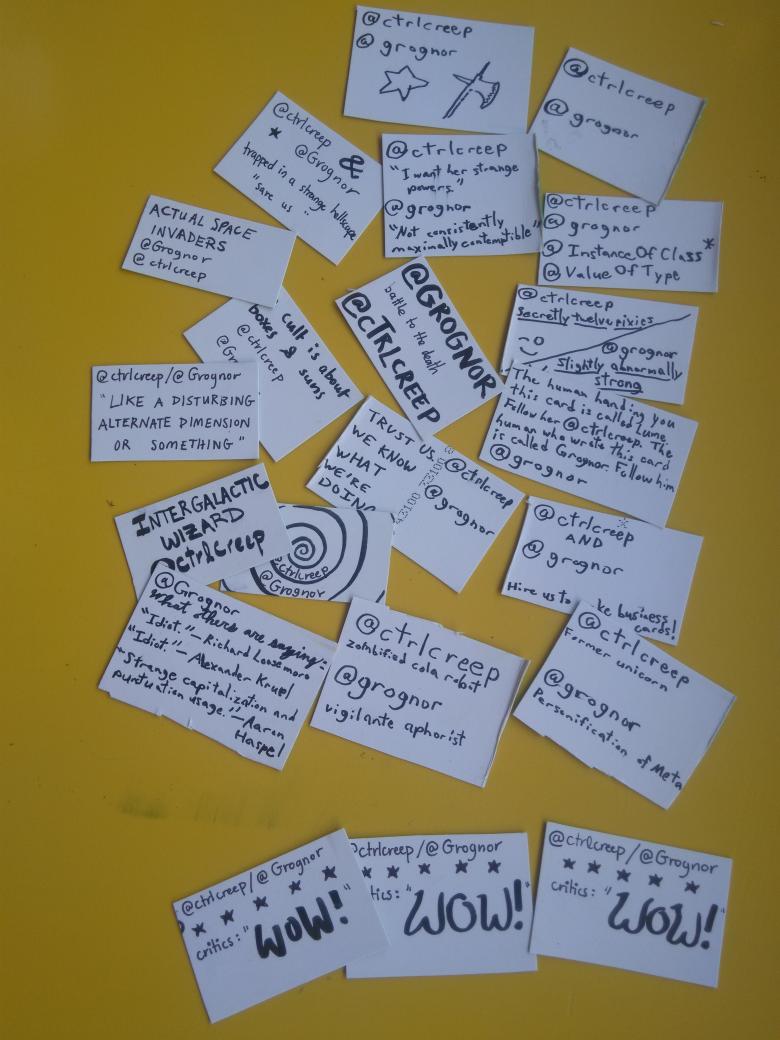 @ctrlcreep
@ grognor
@ctrlcreep
@ grognor
@ctrlcreep
& @Grognor
trapped in a strange hellscape
"save us"
@ctrlcreep
"I want her strange
powers."
@grognor
"Not consistently
maximally contemptible"
@ctrlcreep
@ grognor
@ InstanceOfClass*
@ ValueOfType
ACTUAL SPACE
INVADERS
@Grognor
@ ctrlcreep
@GROGNOR
battle to the death
@CTRLCREEP
@ctrlcreep
Secretly twelve pixies
@grognor
Slightly abnormally
strong
cult is about
boxes & suns
@ctrlcreep
@Gr
@ctrlcreep/@Grognor
"LIKE A DISTURBING
ALTERNATE DIMENSION
OR SOMETHING"
The human handing you
this card is called Lume.
Follow her @ctrlcreep. The
human who wrote this card
is called Grognor. Follow him
@grognor
TRUST US.
WE KNOW
WHAT
WE'RE
DOING
@ctrlcreep
@grognor
INTERGALACTIC
WIZARD
@ctrlcreep
@ctrlcreep
@Grognor
@ctrlcreep
AND
@ grognor
Hire us to ke business
cards!
@Grognor
what others are saying:
"Idiot."—Richard Loosemore
"Idiot."—Alexander Kruel
"Strange capitalization and
puntuation usage."—Aaron
Haspel
@ctrlcreep
zombified cola robot
@grognor
vigilante aphorist
@ctrlcreep
Former unicorn
@grognor
Personification of Meta
@ctrlcreep/@Grognor
critics: "WOW!"
ctrlcreep/@Grognor
tics: "WOW!"
@ctrlcreep/@Grognor
critics: "WOW!"